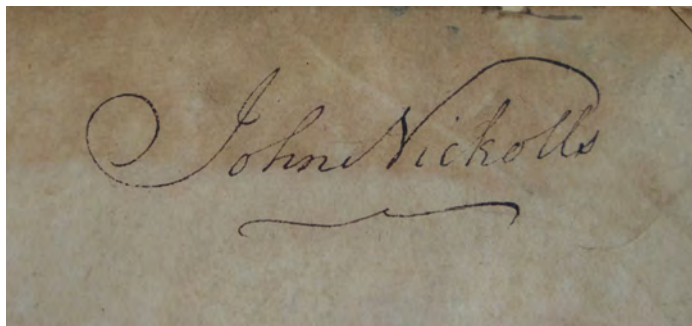 John Nickolls